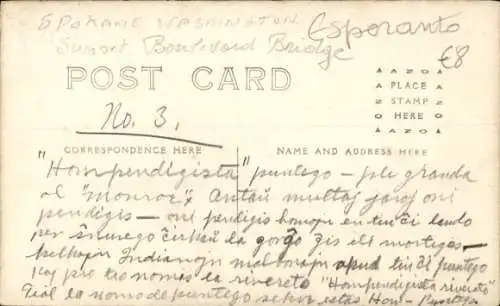 SPOKANE WASHINGTON
Esperanto
Sunset Boulevard Bridge
€8
POST CARD
AZO
PLACE
STAMP
HERE
AZO
No. 3.
CORRESPONDENCE HERE
NAME AND ADDRESS HERE
"Hompendigista" pontego — ple granda
ol "Monroe". Antaŭ multaj jaroj oni
pendigis — oni pendigis homojn en tiu ĉi lando
per ŝnurego ĉirkaŭ la gorĝo ĝis ili mortigas —
kelkajn Indianojn malbonajn apud tiu ĉi pontego
kaj pro tio nomis la rivereto "Hompendigista rivereto"
Tial la nomo de pontego